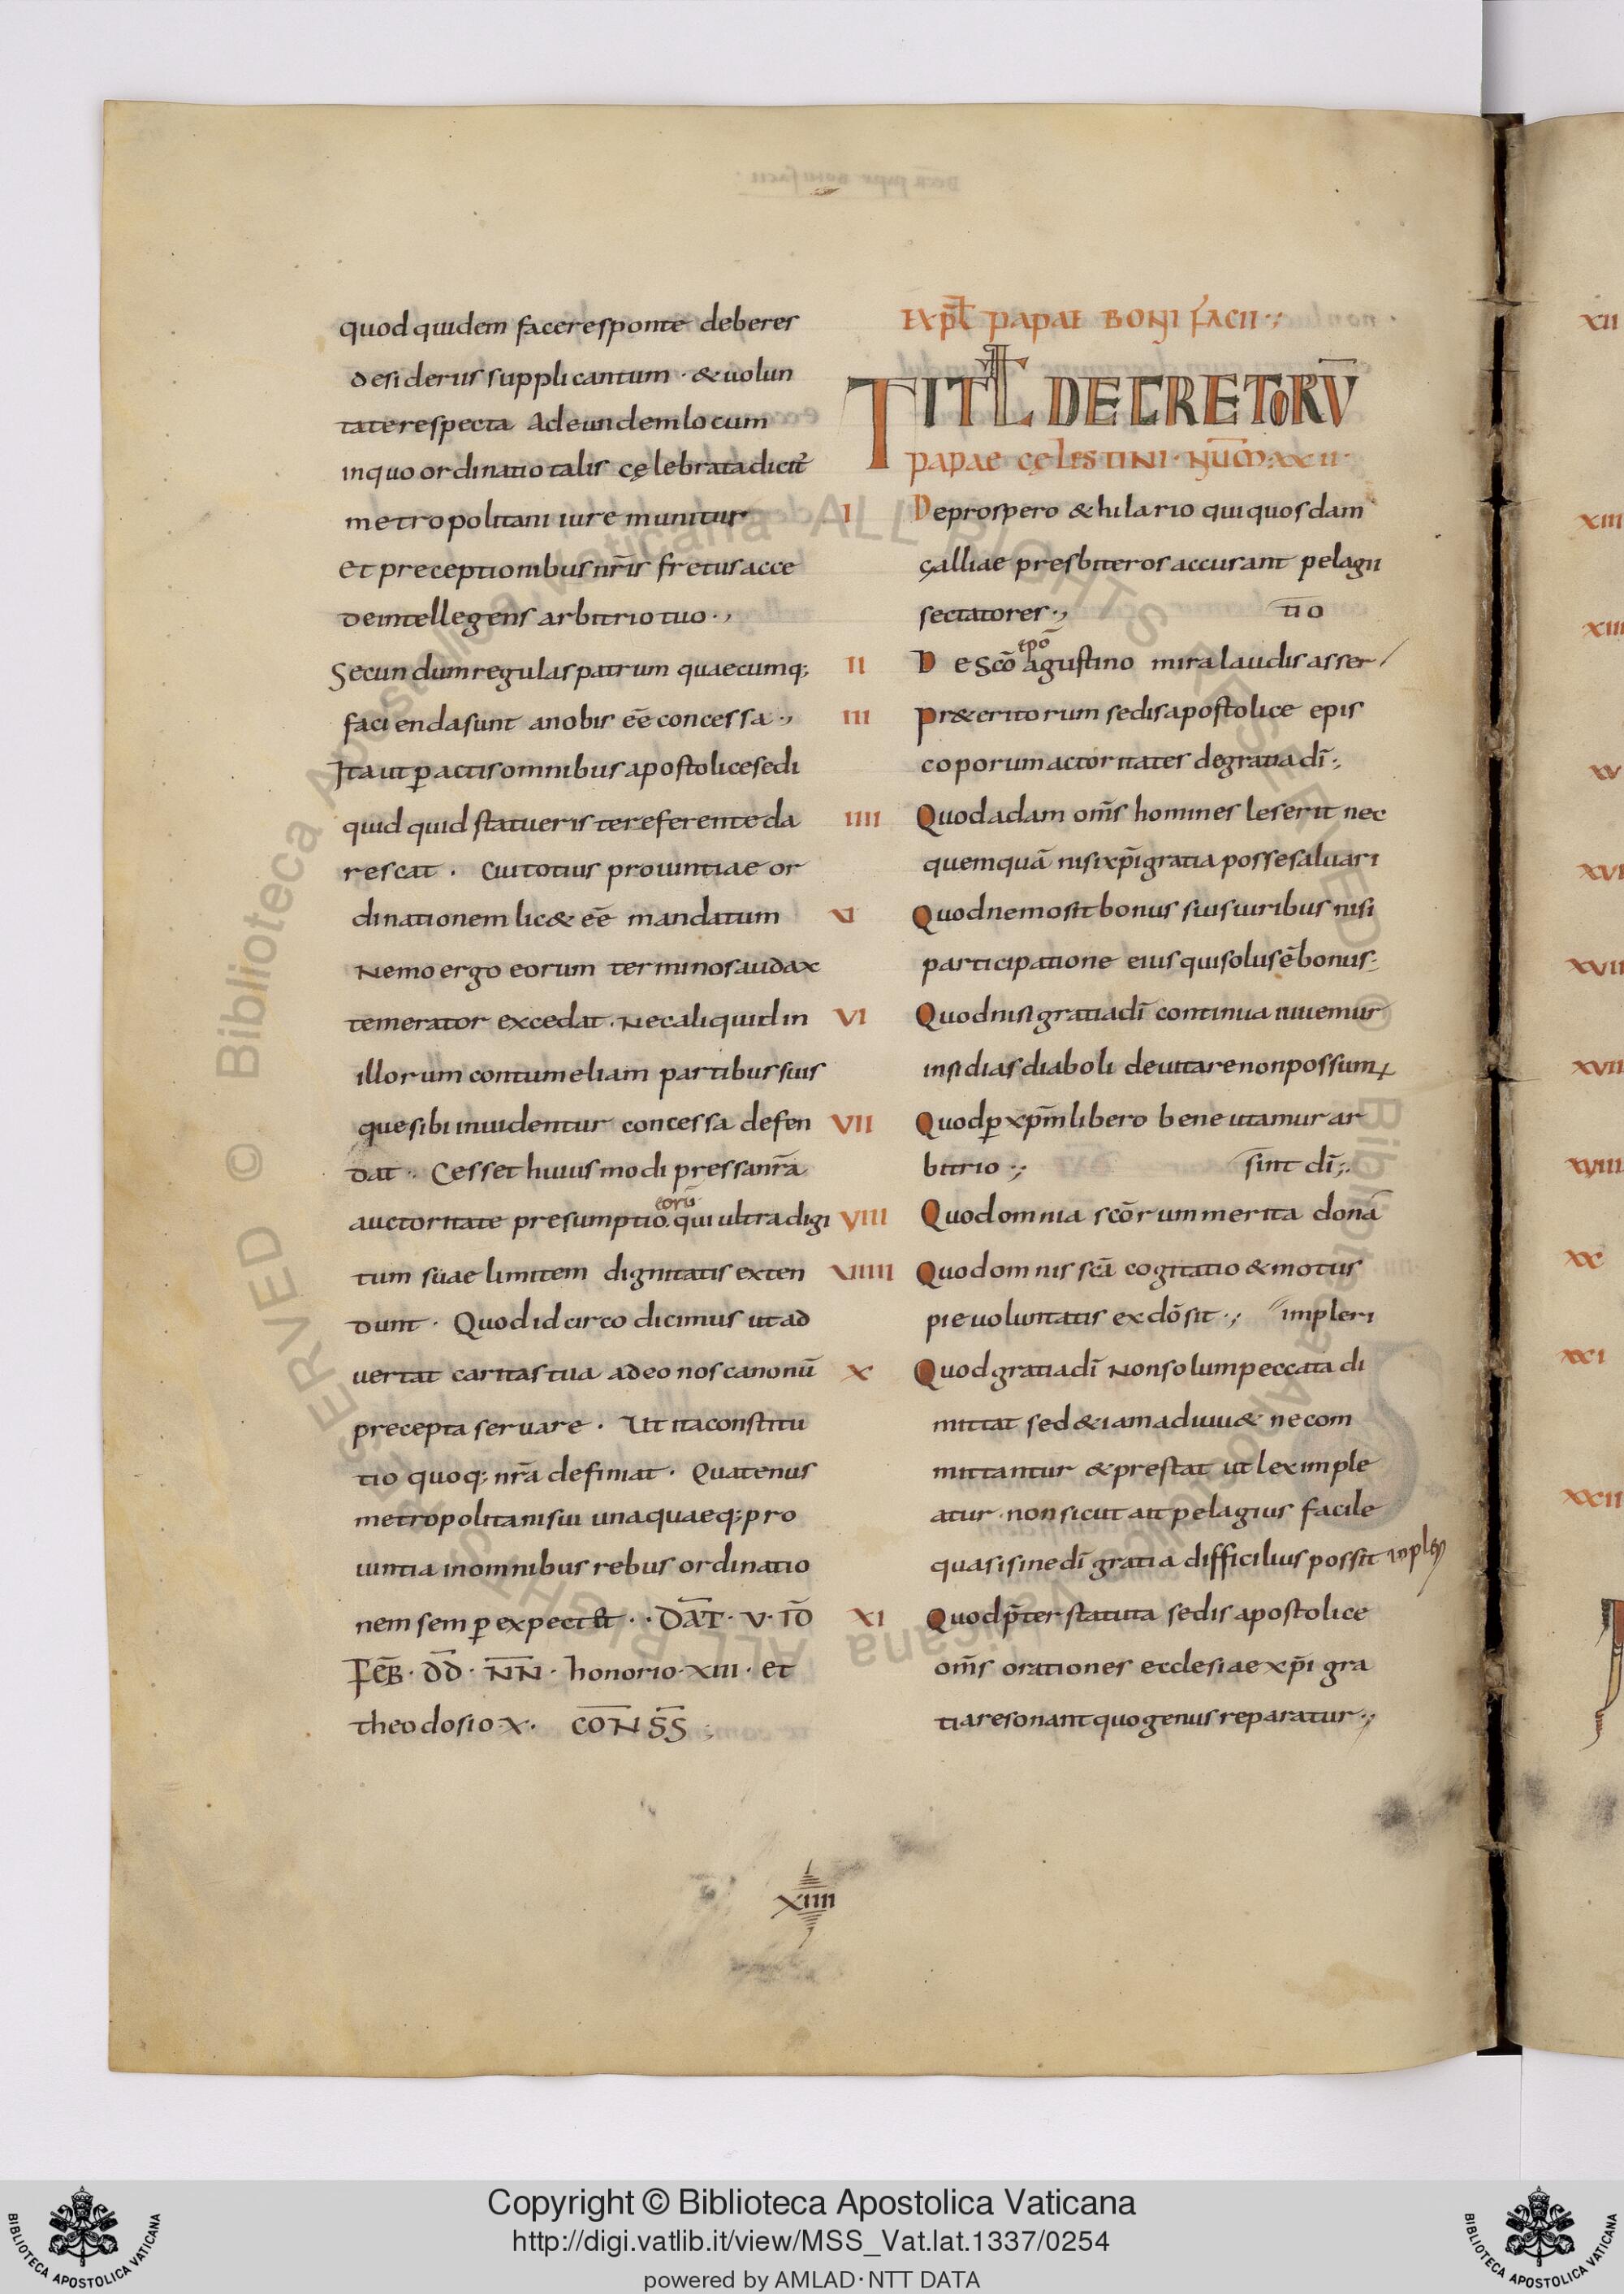 quod quidem facere sponte deberes
desideriis supplicantum · & uolun
tate respecta Ad eundem locum
in quo ordinatio talis cęlebrata dicit̄
metropolitani iure munitur
et preceptionibus nr̄is fretus acce
de intellegens arbitrio tuo ·,
Secundum regulas patrum quaecumq;
facienda sunt a nobis eē concessa ·,
Ita ut ꝑactis omnibus apostolice sedi
quid quid statueris te referente da
rescat · Cui totius prouintiae or
dinationem lic& eē mandatum
Nemo ergo eorum terminos audax
temerator excedat · Nec aliquid in
illorum contumeliam partibus suis
que sibi inuidentur concessa defen
dat · Cesset huius modi pressa nr̄a
eorū
auctoritate presumptio. qui ultra digi
tum suae limitem dignitatis exten
dunt · Quod idcirco dicimus ut ad
uertat caritas tua adeo nos canonū
precepta seruare · Ut ita constitu
tio quoq; nr̄a definiat · Quatenus
metropolitani sui unaquaeq; pro
uintia in omnibus rebus ordinatio
nem semꝑ expectet · · DAT̄ · V · ID̄
FEB̄ · DD̄ · N̄N̄ · honorio · XIII · et
theodosio · X · CONS̄S̄ ;
EXPL̄ PAPAE BONIFACII ·;
TITL̄ DECRETORŪ
PAPAE CĘLESTINI · NUM̄ · XXII ·
I De prospero & hilario qui quosdam
galliae presbiteros accusant pelagii
sectatores ·, tio
epō
II De scō agustino mira laudis asser
III Pr&eritorum sedis apostolice epis
coporum actoritates de gratia dī ;
IIII Quod adam om̄s homines leserit nec
quemquā nisi xp̄i gratia posse saluari
VI Quod nemo sit bonus suis uiribus nisi
participatione eius qui solus ē bonus ;
VI Quod nisi gratia dī continua iuuemur
insidias diaboli deuitare non possum;
VII Quod ꝑ xp̄m libero bene utamur ar
bitrio ·; sint dī ;
VIII Quod omnia scōrum merita donā
VIIIII Quod omnis scā cogitatio & motus
pie uoluntatis ex dō sit ·; impleri
X Quod gratia dī Non solum peccata di
mittat sed & iam adiuu& ne com
mittantur & prestat ut lex imple
atur · non sicut ait pelagius facile
quasi sine dī gratia difficilius possit inpleri
XI Quod p̄ter statuta sedis apostolice
om̄s orationes ecclesiae xp̄i gra
tia resonant quo genus reparatur ·;
XIIII
XII
XIII
XIII
XV
XVI
XVII
XVII
XVIII
XX
XXI
XXII
Copyright © Biblioteca Apostolica Vaticana
http://digi.vatlib.it/view/MSS_Vat.lat.1337/0254
powered by AMLAD·NTT DATA
BIBLIOTECA APOSTOLICA VATICANA
BIBLIOTECA APOSTOLICA VATICANA